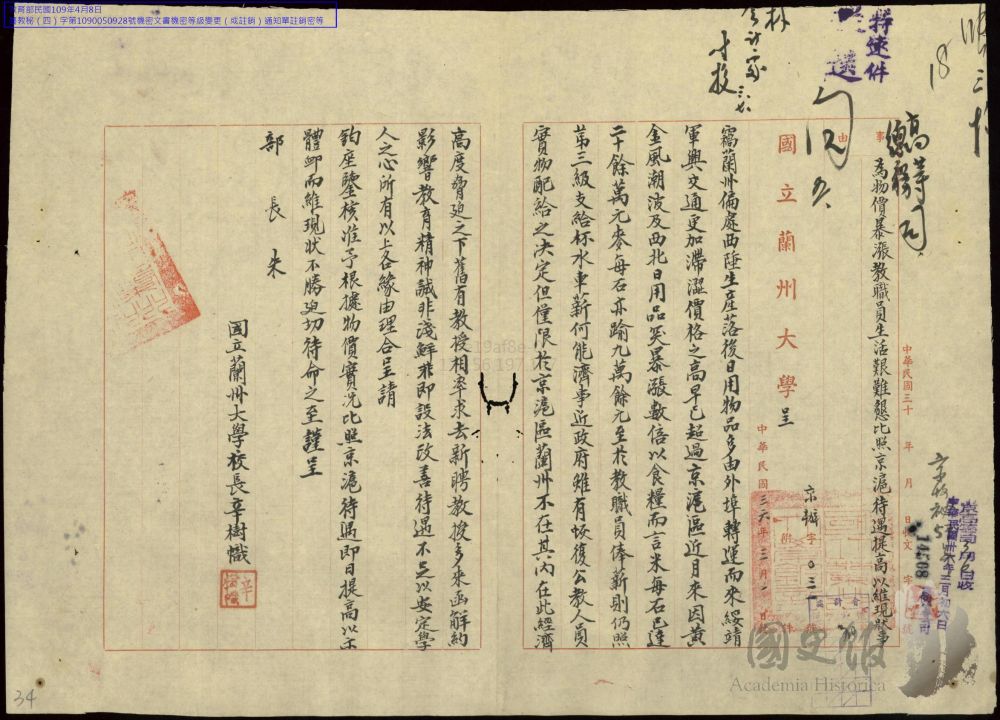 教育部民國109年4月8日
臺教秘（四）字第1090050928號機密文書機密等級變更（或註銷）通知單註銷密等
特速件
18
高等司
總務司
事由
為物價暴漲教職員生活艱難懇比照京滬待遇提高以維現狀事
中華民國三十 年 月 日收文 字 號
中華民國卅六年三月初六日
14508
國立蘭州大學 呈
中華民國三六年三月 日
京辦字 031
附件
竊蘭州偏處西陲生產落後日用物品多由外埠轉運而來綏靖
軍興交通更加滯澀價格之高早已超過京滬區近月來因黃
金風潮波及西北日用品突暴漲數倍以食糧而言米每石已達
二十餘萬元麥每石亦踰九萬餘元至於教職員俸薪則仍照
第三級支給杯水車薪何能濟事近政府雖有恢復公教人員
實物配給之決定但僅限於京滬區蘭州不在其內在此經濟
高度脅迫之下舊有教授相率求去新聘教授多來函解約
影響教育精神誠非淺鮮非即設法改善待遇不足以安定學
人之心所有以上各緣由理合呈請
鈞座鑒核准予根據物價實況比照京滬待遇即日提高以示
體卹而維現狀不勝迫切待命之至謹呈
部長朱
國立蘭州大學校長辛樹幟
34
國史館
Academia Historica